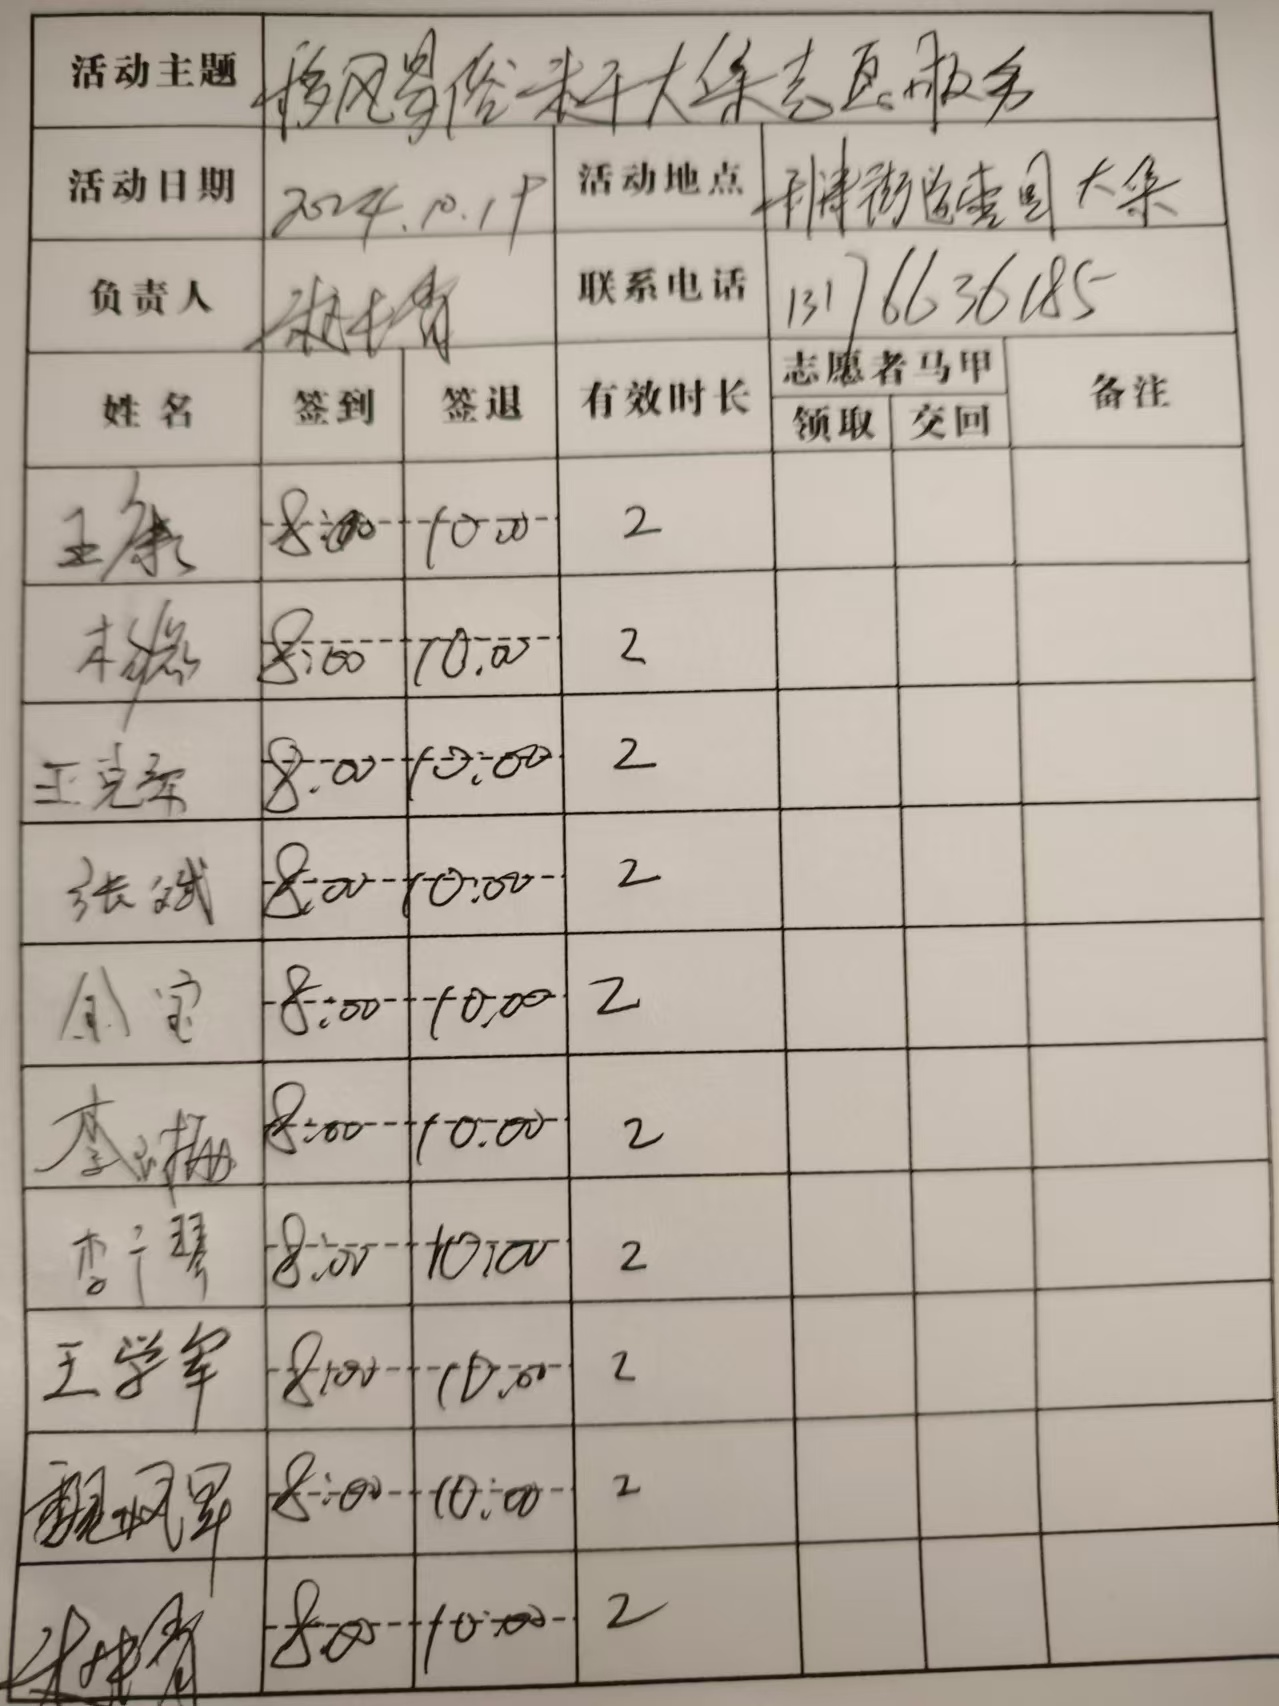 活动主题 移风易俗 大集志愿服务
活动日期 2024.10.19 活动地点 利津街道 大集
负责人 联系电话 13176636185
姓名 签到 签退 有效时长 志愿者马甲 备注
领取 交回
王康 8:00 10:00 2
8:00 10:00 2
王克 8:00 10:00 2
张斌 8:00 10:00 2
金宝 8:00 10:00 2
李 梅 8:00 10:00 2
李 琴 8:00 10:00 2
王学军 8:00 10:00 2
魏风军 8:00 10:00 2
8:00 10:00 2